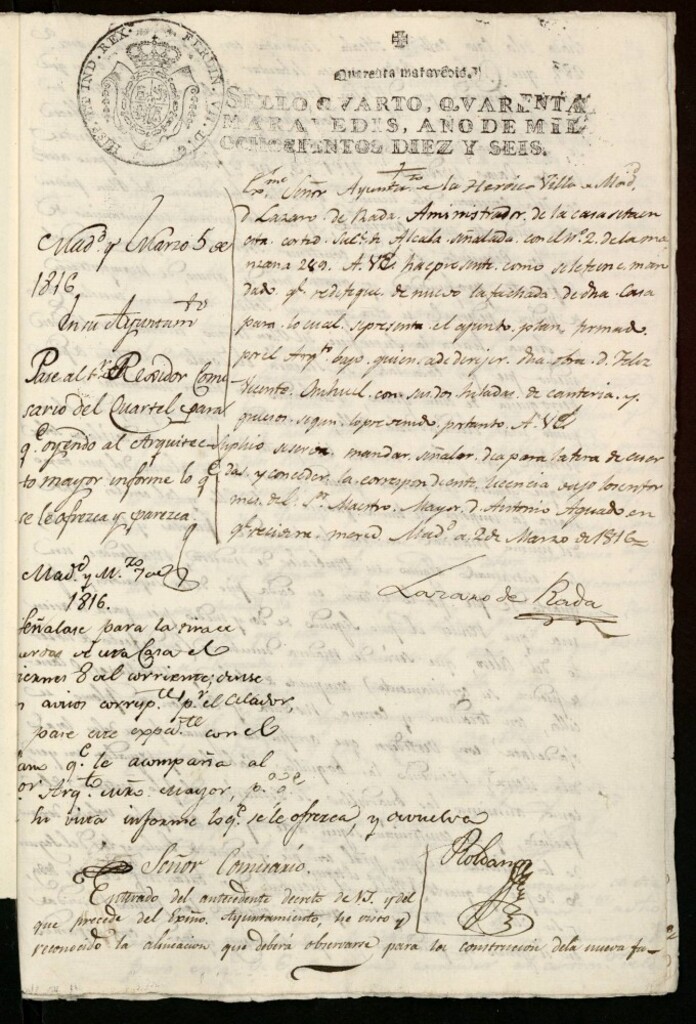 HISP. ET IND. REX. FERDIN. VII. D. G.
Quarenta maravedis.
SELLO QVARTO, QVARENTA
MARAVEDIS, AÑO DE MIL
OCHOCIENTOS DIEZ Y SEIS.
Exmo Señor Ayuntto de la Heroica Villa de Madd
D. Lazaro de Rada Aministrador de la casa sita en
esta corte de Alcala señalada con el No. 2. de la man
zana 289. A. VE hace presente como se le tiene man
dado qe redifique de nuevo la fachada de dha Casa
para lo cual representa el ajunto plan firmado
por el Arqto bajo quien a de dirijer dha obra D.
Vicente con sus dos de canteria y
segun lo prevenido por tanto A. VE
Suplico se sirva mandar señalar dia para la tira de cuer
das y conceder la correspondiente licencia vajo los infor
mes del Sr. Maestro Mayor D. Antonio Aguado en
qe recivira merced Madd a 2 de Marzo de 1816=
Lazaro de Rada
Madd y Marzo 5 de
1816
En su Ayuntamto
Pase al Sr. Regidor Comi
sario del Quartel para
qe oyendo al Arquitec
to mayor informe lo qe
se le ofrezca y parezca.
Madd y Mzo 7 de
1816.
Señalase para la tira de
cuerdas de esta Casa el
viernes 8 del corriente; dense
avisos corrspte pr el Celador,
pase este expedte con el
plano qe le acompaña al
Sor Arqto Mro Mayor, pa qe
en su vista informe lo qe se le ofrezca, y devuelva
Roldan
Señor Comisario.
Enterado del antecedente decreto de V.S. y del
que precede del Exmo. Ayuntamiento, he visto y
reconocido la alineacion que deberá observarse para la construccion de la nueva fa-